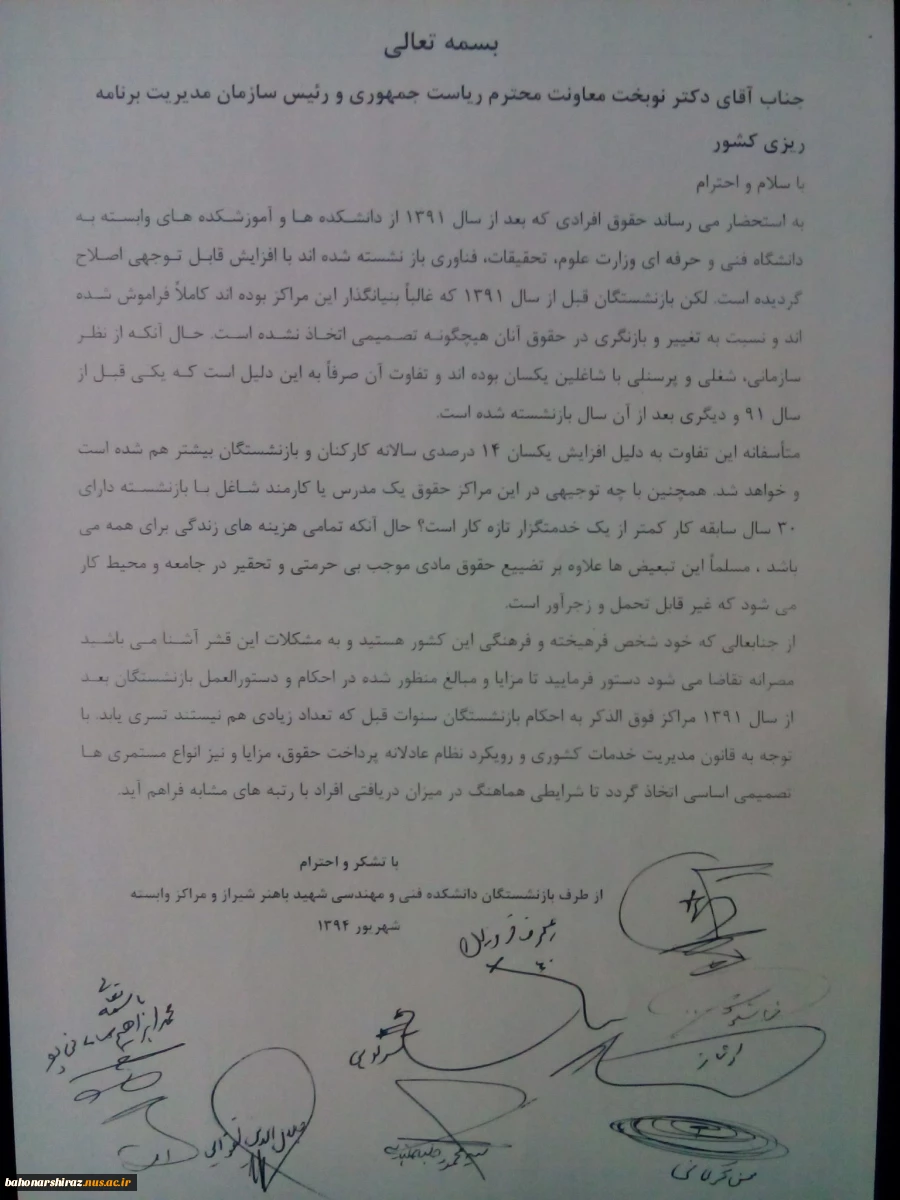 بسمه تعالی
جناب آقای دکتر نوبخت معاونت محترم ریاست جمهوری و رئیس سازمان مدیریت برنامه
ریزی کشور
با سلام و احترام
به استحضار می رساند حقوق افرادی که بعد از سال ۱۳۹۱ از دانشکده ها و آموزشکده های وابسته به
دانشگاه فنی و حرفه ای وزارت علوم، تحقیقات، فناوری باز نشسته شده اند با افزایش قابل توجهی اصلاح
گردیده است. لکن بازنشستگان قبل از سال ۱۳۹۱ که غالباً بنیانگذار این مراکز بوده اند کاملاً فراموش شده
اند و نسبت به تغییر و بازنگری در حقوق آنان هیچگونه تصمیمی اتخاذ نشده است. حال آنکه از نظر
سازمانی، شغلی و پرسنلی با شاغلین یکسان بوده اند و تفاوت آن صرفاً به این دلیل است که یکی قبل از
سال ۹۱ و دیگری بعد از آن سال بازنشسته شده است.
متأسفانه این تفاوت به دلیل افزایش یکسان ۱۴ درصدی سالانه کارکنان و بازنشستگان بیشتر هم شده است
و خواهد شد. همچنین با چه توجیهی در این مراکز حقوق یک مدرس یا کارمند شاغل با بازنشسته دارای
۳۰ سال سابقه کار کمتر از یک خدمتگزار تازه کار است؟ حال آنکه تمامی هزینه های زندگی برای همه می
باشد ، مسلماً این تبعیض ها علاوه بر تضییع حقوق مادی موجب بی حرمتی و تحقیر در جامعه و محیط کار
می شود که غیر قابل تحمل و زجرآور است.
از جنابعالی که خود شخص فرهیخته و فرهنگی این کشور هستید و به مشکلات این قشر آشنا می باشید
مصرانه تقاضا می شود دستور فرمایید تا مزایا و مبالغ منظور شده در احکام و دستورالعمل بازنشستگان بعد
از سال ۱۳۹۱ مراکز فوق الذکر به احکام بازنشستگان سنوات قبل که تعداد زیادی هم نیستند تسری یابد. با
توجه به قانون مدیریت خدمات کشوری و رویکرد نظام عادلانه پرداخت حقوق، مزایا و نیز انواع مستمری ها
تصمیمی اساسی اتخاذ گردد تا شرایطی هماهنگ در میزان دریافتی افراد با رتبه های مشابه فراهم آید.
با تشکر و احترام
از طرف بازنشستگان دانشکده فنی و مهندسی شهید باهنر شیراز و مراکز وابسته
شهریور ۱۳۹۴
باسمه تعالی
محمد ابراهیم
جلال الدین
bahonarshiraz.nus.ac.ir